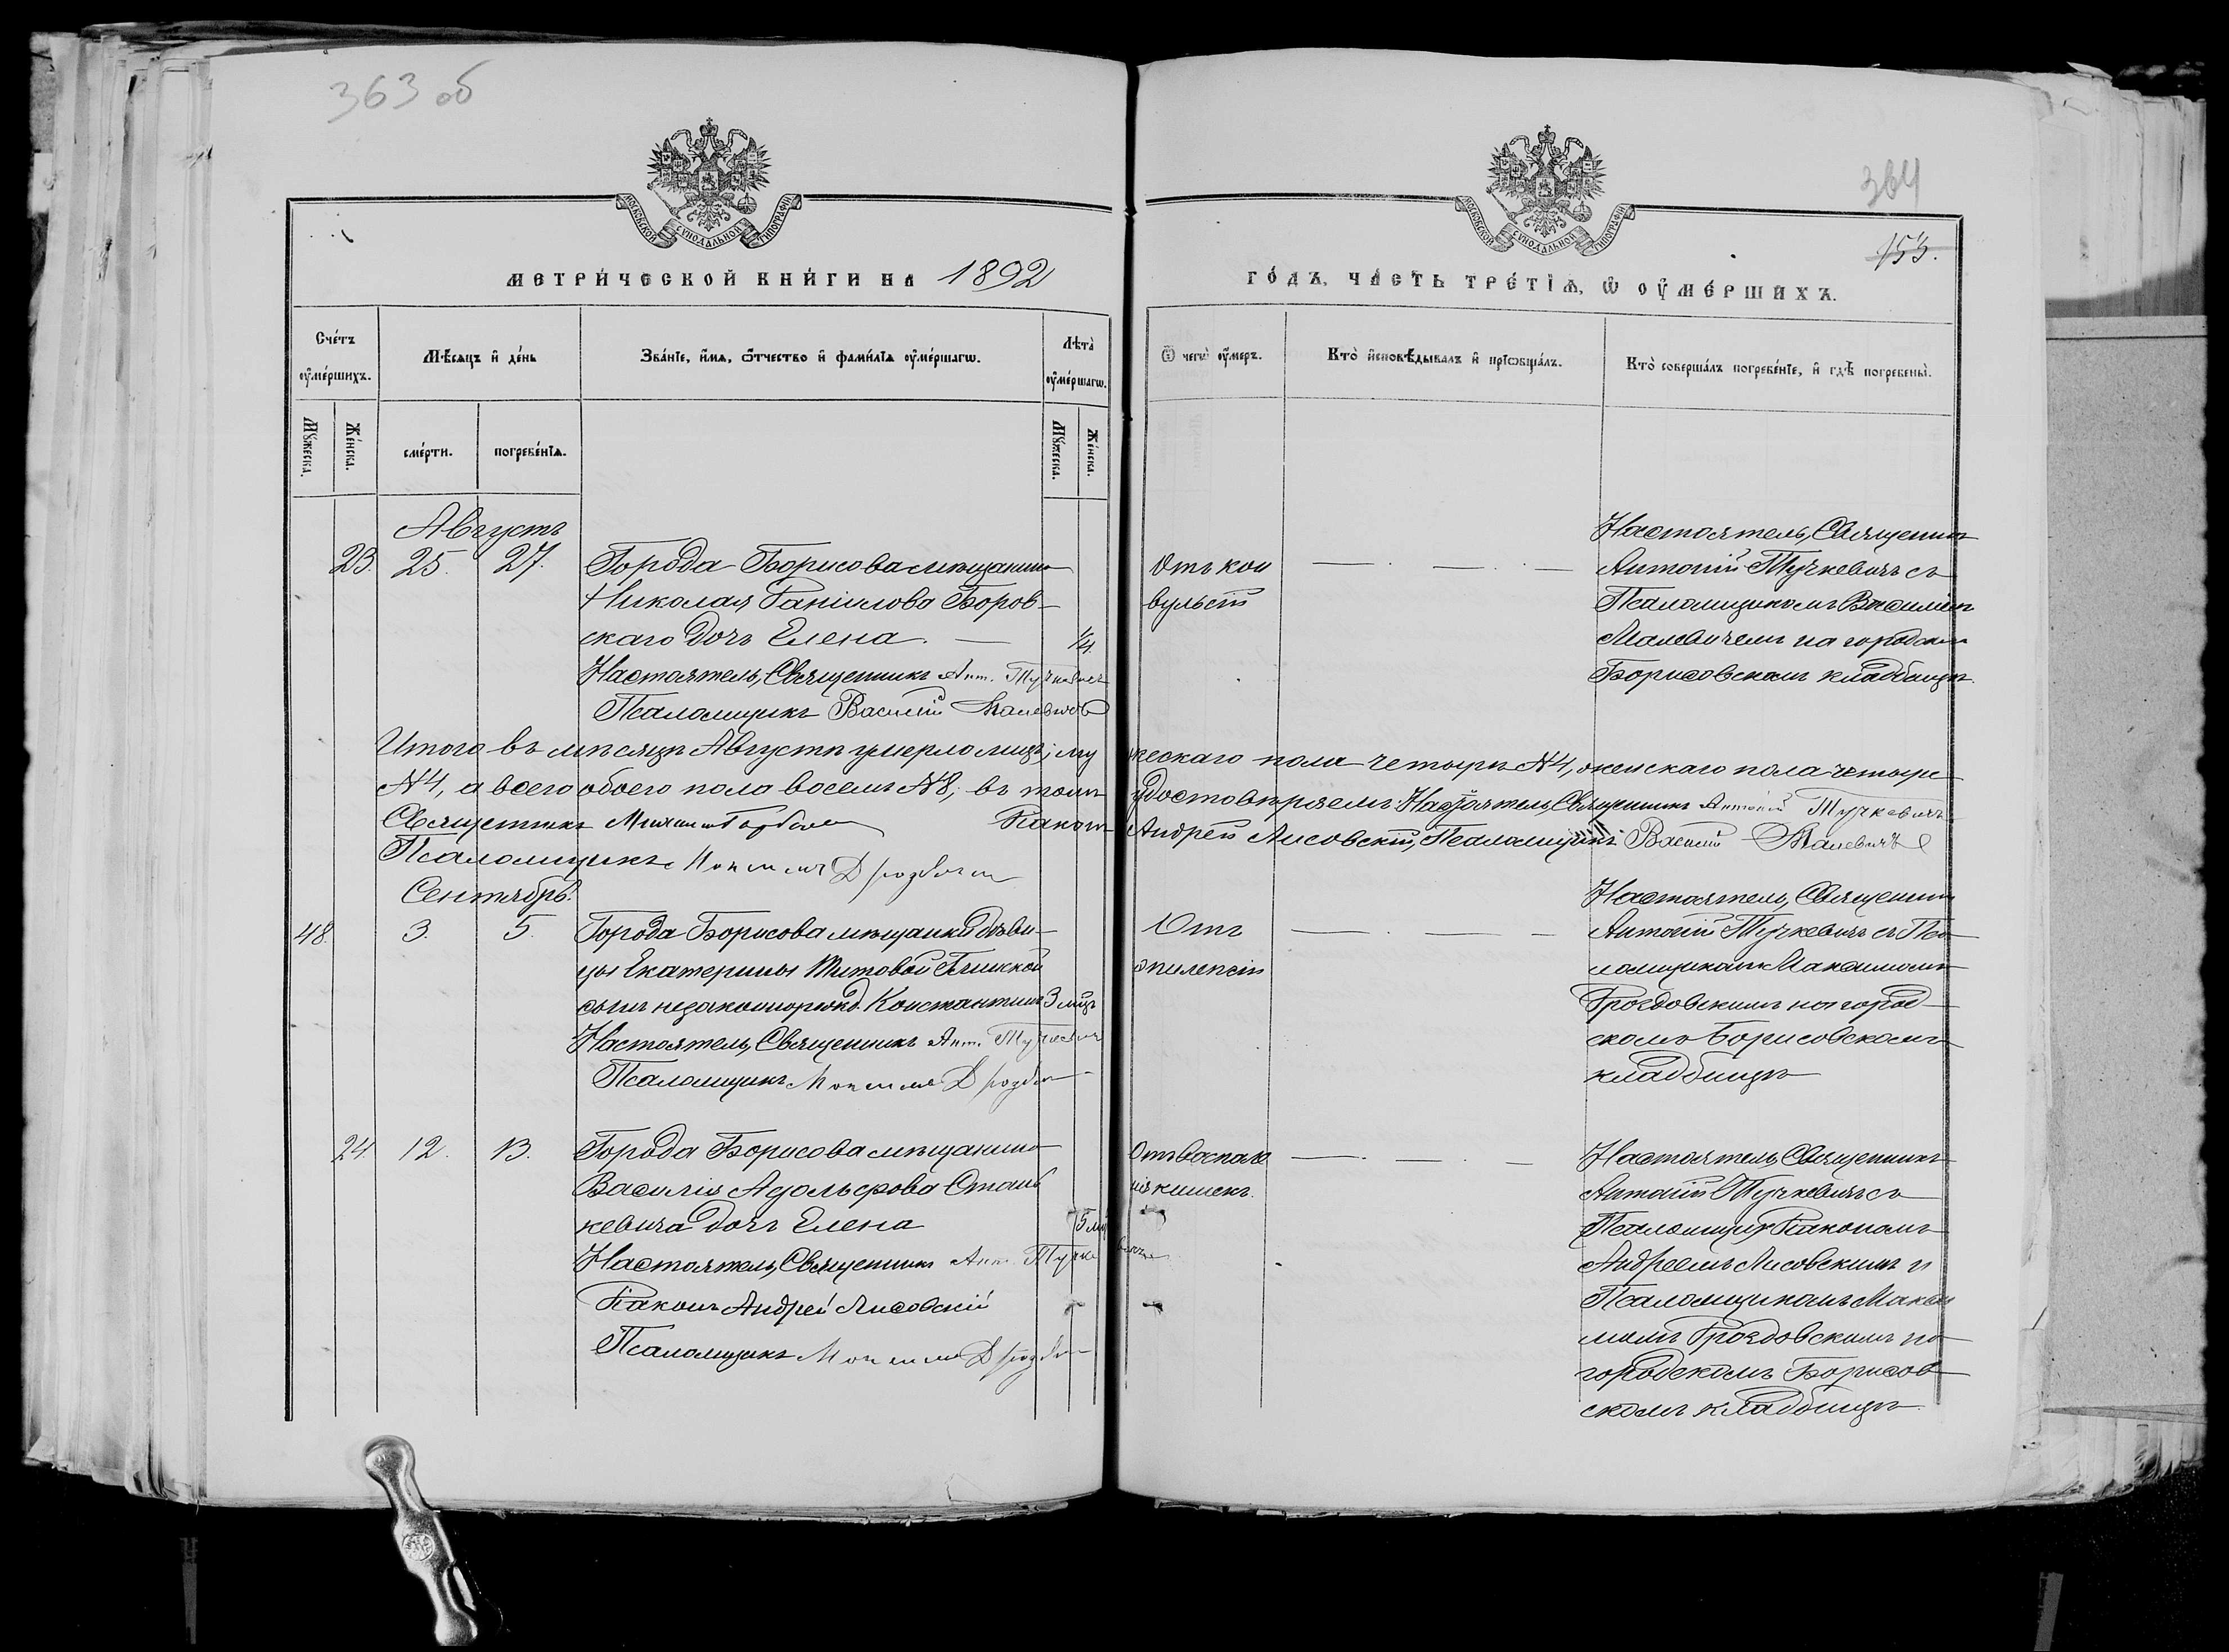 363 об
364
153.
МОСКОВСКОЙ СѴНОДАЛЬНОЙ ТИПОГРАФІИ
МОСКОВСКОЙ СѴНОДАЛЬНОЙ ТИПОГРАФІИ
МЕТРИ́ЧЕСКОЙ КНИ́ГИ НА 1892
ГО́ДЪ, ЧА́СТЬ ТРЕ́ТІѦ, Ѿ ОУ҆МЕ́РШИХЪ.
Сче́тъ оу҆ме́ршихъ.
Мꙋ́жеска.
Же́нска.
Мѣ́сяцъ и҆ де́нь
сме́рти.
погребе́нїѧ.
Зва́нїе, и҆́мѧ, ѻ҆́тчество и҆ фами́лїѧ оу҆ме́ршагѡ.
Лѣта̀ оу҆ме́ршагѡ.
Мꙋ́жеска.
Же́нска.
Ѿ чегѡ̀ оу҆́меръ.
Кто̀ и҆сповѣ́дывалъ и҆ прїѡбща́лъ.
Кто̀ соверша́лъ погребе́нїе, и҆ гдѣ̀ погребены̀.
Августъ
23. 25. 27. Города Борисова мѣщанина
Николая Данiилова Боров-
скаго дочь Елена. 1/4
Настоятель, Священникъ Ант. Тучкевичъ
Псаломщикъ Василій Малевичъ
Отъ кон
вульсій
Настоятель, Священникъ
Антоній Тучкевичъ съ
Псаломщикомъ Василіемъ
Малевичемъ на городскомъ
Борисовскомъ кладбищѣ.
Итого въ мѣсяцѣ Августѣ умерло лицъ; му жескаго пола четыре №4, женскаго пола четыре
№4, а всего обоего пола восемь №8; въ томъ удостовѣряемъ: Настоятель, Священникъ Антоній Тучкевичъ
Священникъ Михаилъ Горбачев Діаконъ Андрей Лисовскій, Псаломщикъ Василій Малевичъ
Псаломщикъ Максимъ Дроздовскій
Сентябрь.
48. 3. 5. Города Борисова мѣщанки дѣви-
цы Екатерины Титовой
сынъ незаконорожд. Константинъ 3 мѣц.
Настоятель, Священникъ Ант. Тучкевичъ
Псаломщикъ Максимъ Дроздов
Отъ
эпилепсіи
Настоятель, Священникъ
Антоній Тучкевичъ съ Пса-
ломщикомъ Максимомъ
Дроздовскимъ на город-
скомъ Борисовскомъ
кладбищѣ
24. 12. 13. Города Борисова мѣщанина
Василія Адольфова Стань
кевича дочь Елена 5 мѣ
Настоятель, Священникъ Ант. Тучке вичъ
Діаконъ Андрей Лисовскій
Псаломщикъ Максимъ Дроздов
Отъ воспале
нія кишекъ.
Настоятель Священникъ
Антоній Тучкевичъ съ
Діакономъ
Андреемъ Лисовскимъ и
Псаломщикомъ Макси
момъ Дроздовскимъ на
городскомъ Борисов
скомъ кладбищѣ.